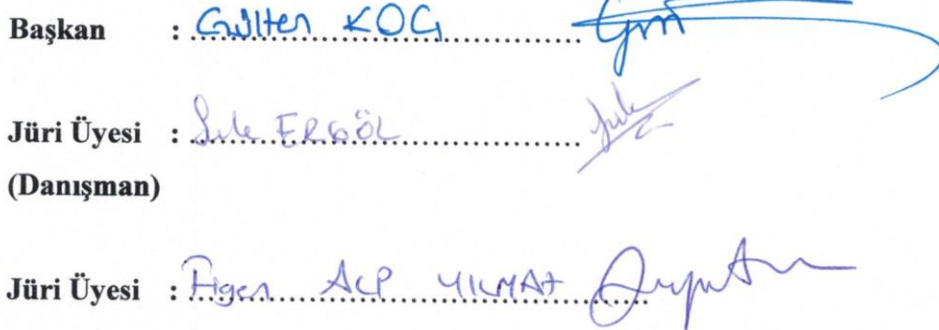 Başkan : Gülten KOÇ
Jüri Üyesi : Şule ERGÖL
(Danışman)
Jüri Üyesi : Figen ALP YILMAZ